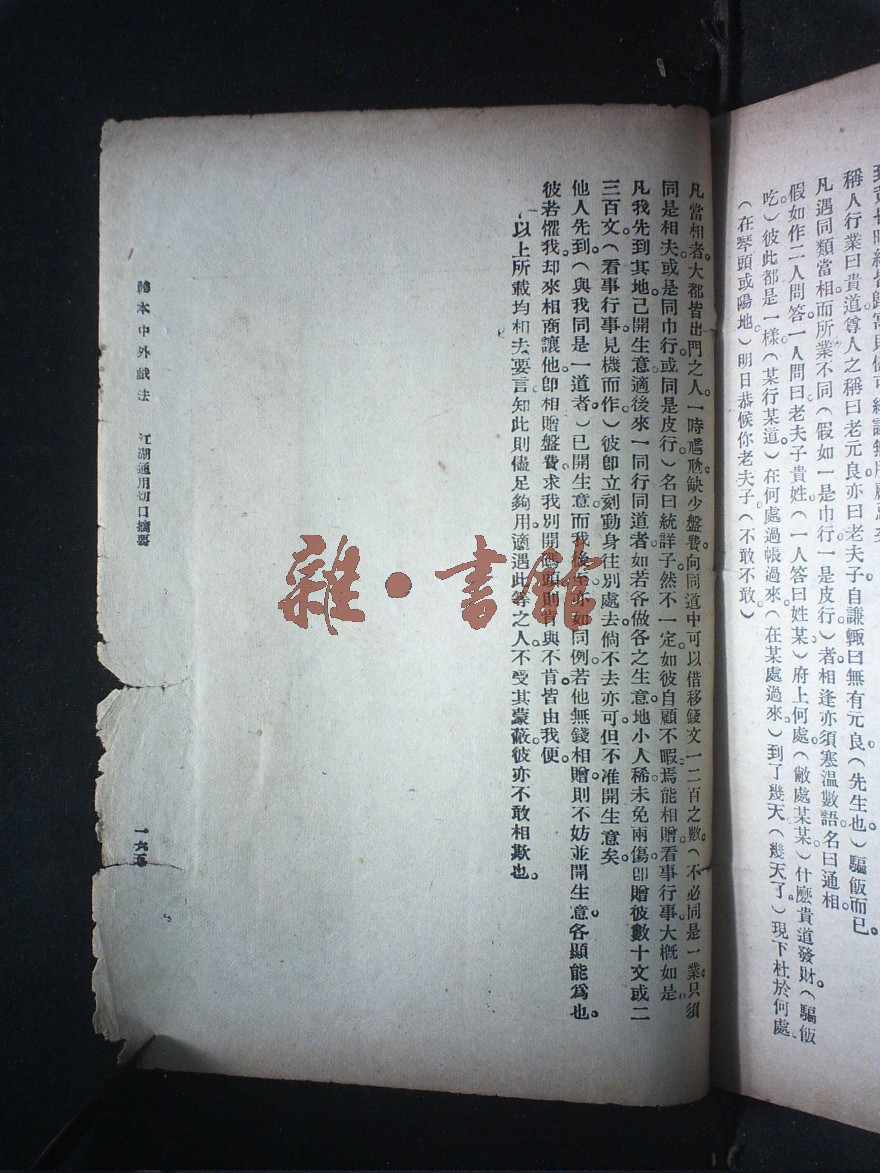 稱人行業曰貴道尊人之稱曰老元良亦曰老夫子自謙輒曰無有元良(先生也)騙飯而已。
凡遇同類當相而所業不同(假如一是巾行一是皮行)者相逢亦須寒溫數語名曰通相。
假如作二人問答一人問曰老夫子貴姓(一人答曰姓某)府上何處(敝處某某)什麼貴道發財(騙飯
吃)彼此都是一樣(某行某道)在何處過帳過來(在某處過來)到了幾天(幾天了)現下杜於何處
(在琴頭或陽地)明日恭候你老夫子(不敢不敢)
凡當相者大都皆出門之人。一時尷尬缺少盤費向同道中可以借移錢文一二百之數。(不必同是一業只須
同是相夫或是同巾行或同是皮行)名曰統詳子。然不一定如彼自顧不暇焉能相贈看事行事大概如是
凡我先到其地已開生意適後來一同行同道者如若各做各之生意地小人稀未免兩傷。卽贈彼數十文或二
三百文。(看事行事見機而作)彼卽立刻動身往別處去倘不去亦可但不准開生意矣。
他人先到(與我同是一道者)已開生意而我後至亦如同例。若他無錢相贈則不妨並開生意。各顯能爲也。
彼若懼我。却來相商讓他。卽相贈盤費求我別開碼頭則肯與不肯皆由我便。
以上所載均相夫要言知此則儘足夠用。適遇此等之人不受其蒙蔽彼亦不敢相欺也。
繪本中外戲法 江湖通用切口摘要
一六五
雜·書館